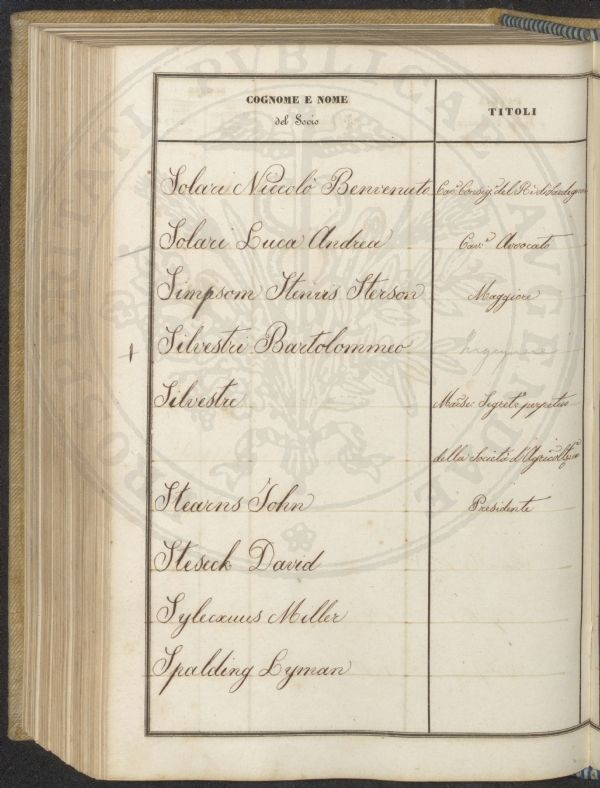 COGNOME E NOME
del Socio
TITOLI
Solari Niccolò Benvenuto Cav.e Consig.e del Re di Sardegna
Solari Luca Andrea Cav.e Avvocato
Simpsom Stenvis Sterson Maggiore
Silvestri Bartolommeo Ingegnere
Silvestre Segret.o perpetuo
della Società d'Agricolt.ra
Stearns John Presidente
Stesick David
Miller
Spalding Lyman
PROSPERITATI PUBLICAE AUGENDAE